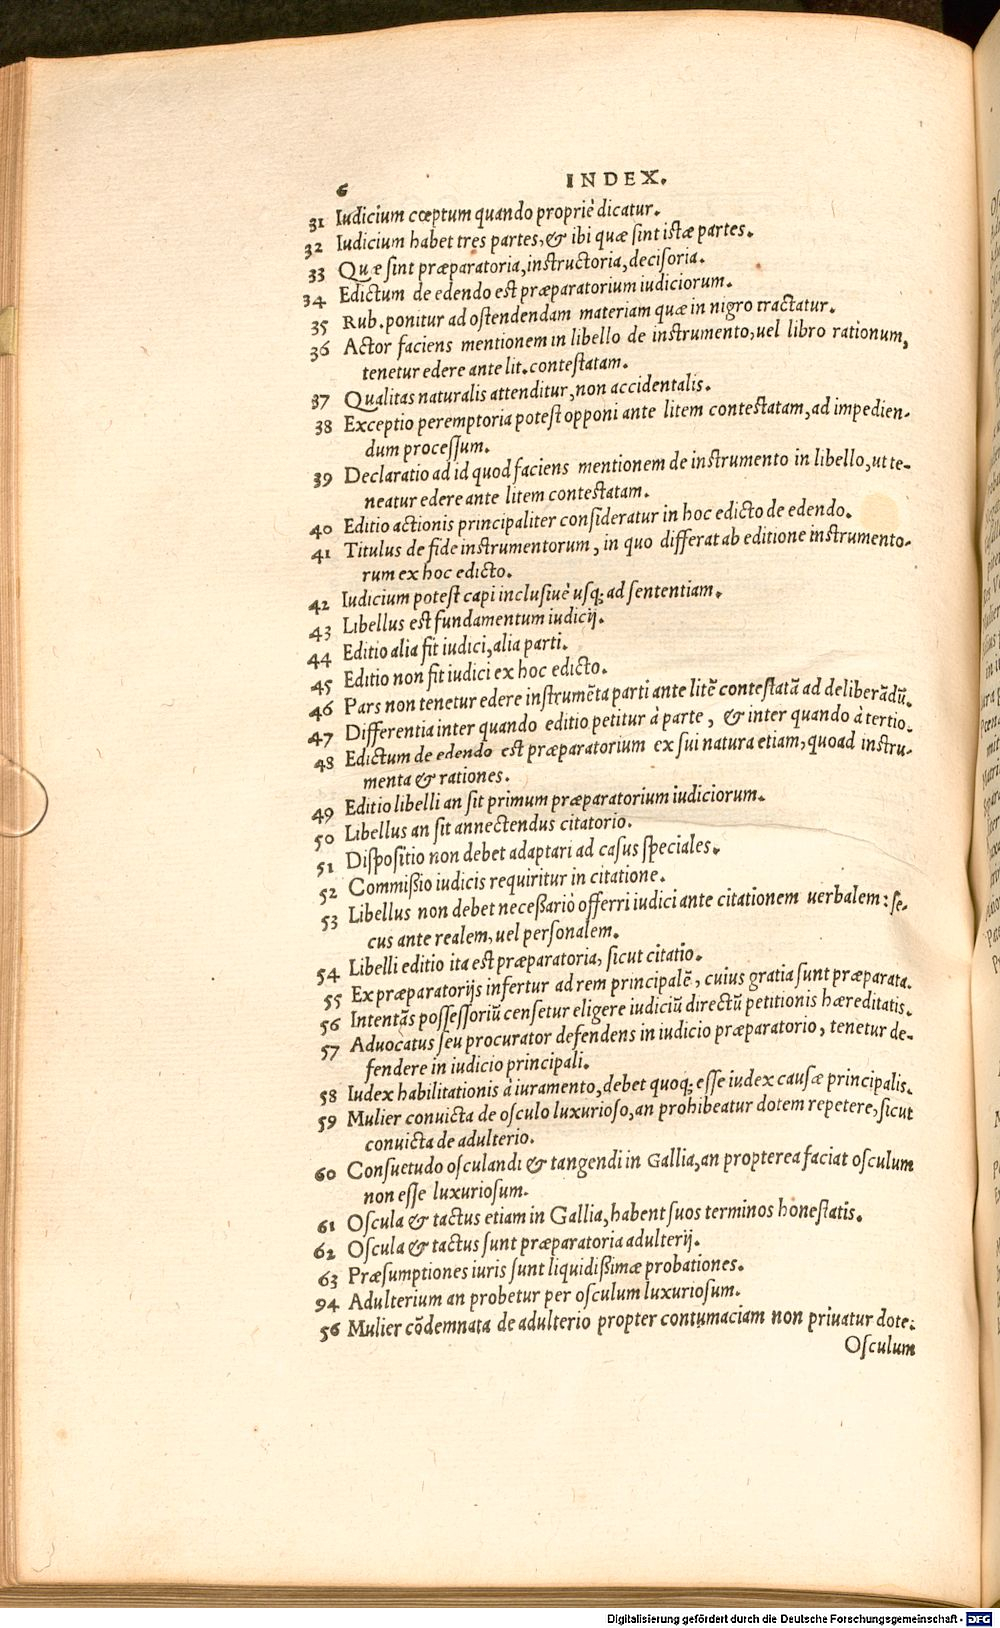 6 INDEX.
31 Iudicium cœptum quando propriè dicatur.
32 Iudicium habet tres partes, & ibi quæ ſint iſtæ partes.
33 Quæ ſint præparatoria, inſtructoria, deciſoria.
34 Edictum de edendo eſt præparatorium iudiciorum.
35 Rub. ponitur ad oſtendendam materiam quæ in nigro tractatur.
36 Actor faciens mentionem in libello de inſtrumento, uel libro rationum,
tenetur edere ante lit. conteſtatam.
37 Qualitas naturalis attenditur, non accidentalis.
38 Exceptio peremptoria poteſt opponi ante litem conteſtatam, ad impedien-
dum proceſſum.
39 Declaratio ad id quod faciens mentionem de inſtrumento in libello, ut te-
neatur edere ante litem conteſtatam.
40 Editio actionis principaliter conſideratur in hoc edicto de edendo.
41 Titulus de fide inſtrumentorum, in quo differat ab editione inſtrumento-
rum ex hoc edicto.
42 Iudicium poteſt capi incluſiuè uſq; ad ſententiam.
43 Libellus eſt fundamentum iudicij.
44 Editio alia fit iudici, alia parti.
45 Editio non fit iudici ex hoc edicto.
46 Pars non tenetur edere inſtrumẽta parti ante litẽ conteſtatã ad deliberãdũ.
47 Differentia inter quando editio petitur à parte, & inter quando à tertio.
48 Edictum de edendo eſt præparatorium ex ſui natura etiam, quoad inſtru-
menta & rationes.
49 Editio libelli an ſit primum præparatorium iudiciorum.
50 Libellus an ſit annectendus citatorio.
51 Diſpoſitio non debet adaptari ad caſus ſpeciales.
52 Commiſſio iudicis requiritur in citatione.
53 Libellus non debet neceſſariò offerri iudici ante citationem uerbalem: ſe-
cus ante realem, uel perſonalem.
54 Libelli editio ita eſt præparatoria, ſicut citatio.
55 Ex præparatorijs infertur ad rem principalẽ, cuius gratia ſunt præparata.
56 Intentãs poſſeſſoriũ cenſetur eligere iudiciũ directũ petitionis hæreditatis.
57 Aduocatus ſeu procurator defendens in iudicio præparatorio, tenetur de-
fendere in iudicio principali.
58 Iudex habilitationis à iuramento, debet quoq; eſſe iudex cauſæ principalis.
59 Mulier conuicta de oſculo luxurioſo, an prohibeatur dotem repetere, ſicut
conuicta de adulterio.
60 Conſuetudo oſculandi & tangendi in Gallia, an propterea faciat oſculum
non eſſe luxurioſum.
61 Oſcula & tactus etiam in Gallia, habent ſuos terminos honeſtatis.
62 Oſcula & tactus ſunt præparatoria adulterij.
63 Præſumptiones iuris ſunt liquidiſſimæ probationes.
94 Adulterium an probetur per oſculum luxurioſum.
56 Mulier cõdemnata de adulterio propter contumaciam non priuatur dote:
Oſculum
Digitalisierung gefördert durch die Deutsche Forschungsgemeinschaft - DFG